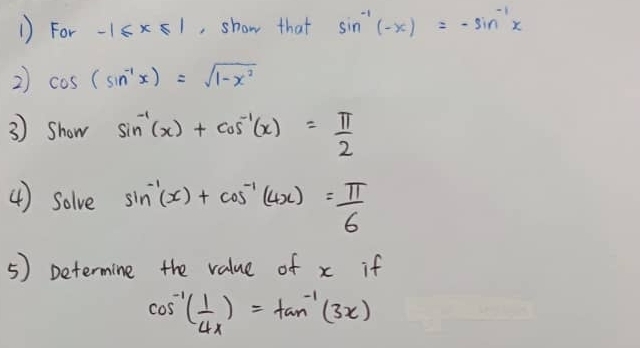 1) For -1 ≤ x ≤ 1, show that sin⁻¹(-x) = -sin⁻¹x
2) cos (sin⁻¹x) = √1-x²
3) Show sin⁻¹(x) + cos⁻¹(x) = π/2
4) Solve sin⁻¹(x) + cos⁻¹(4x) = π/6
5) Determine the value of x if
cos⁻¹(1/4x) = tan⁻¹(3x)